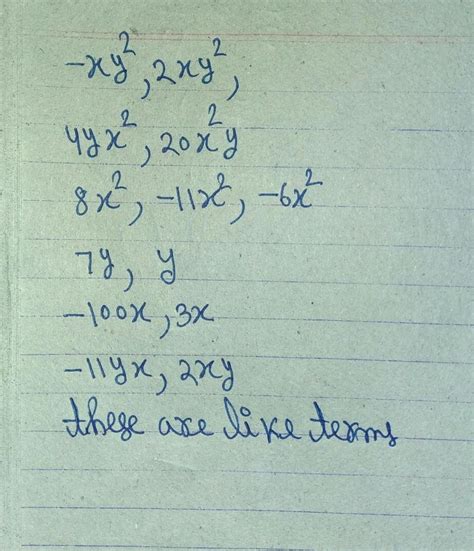 -xy², 2xy²,
4yx², 20x²y
8x², -11x², -6x²
7y, y
-100x, 3x
-11yx, 2xy
these are like terms